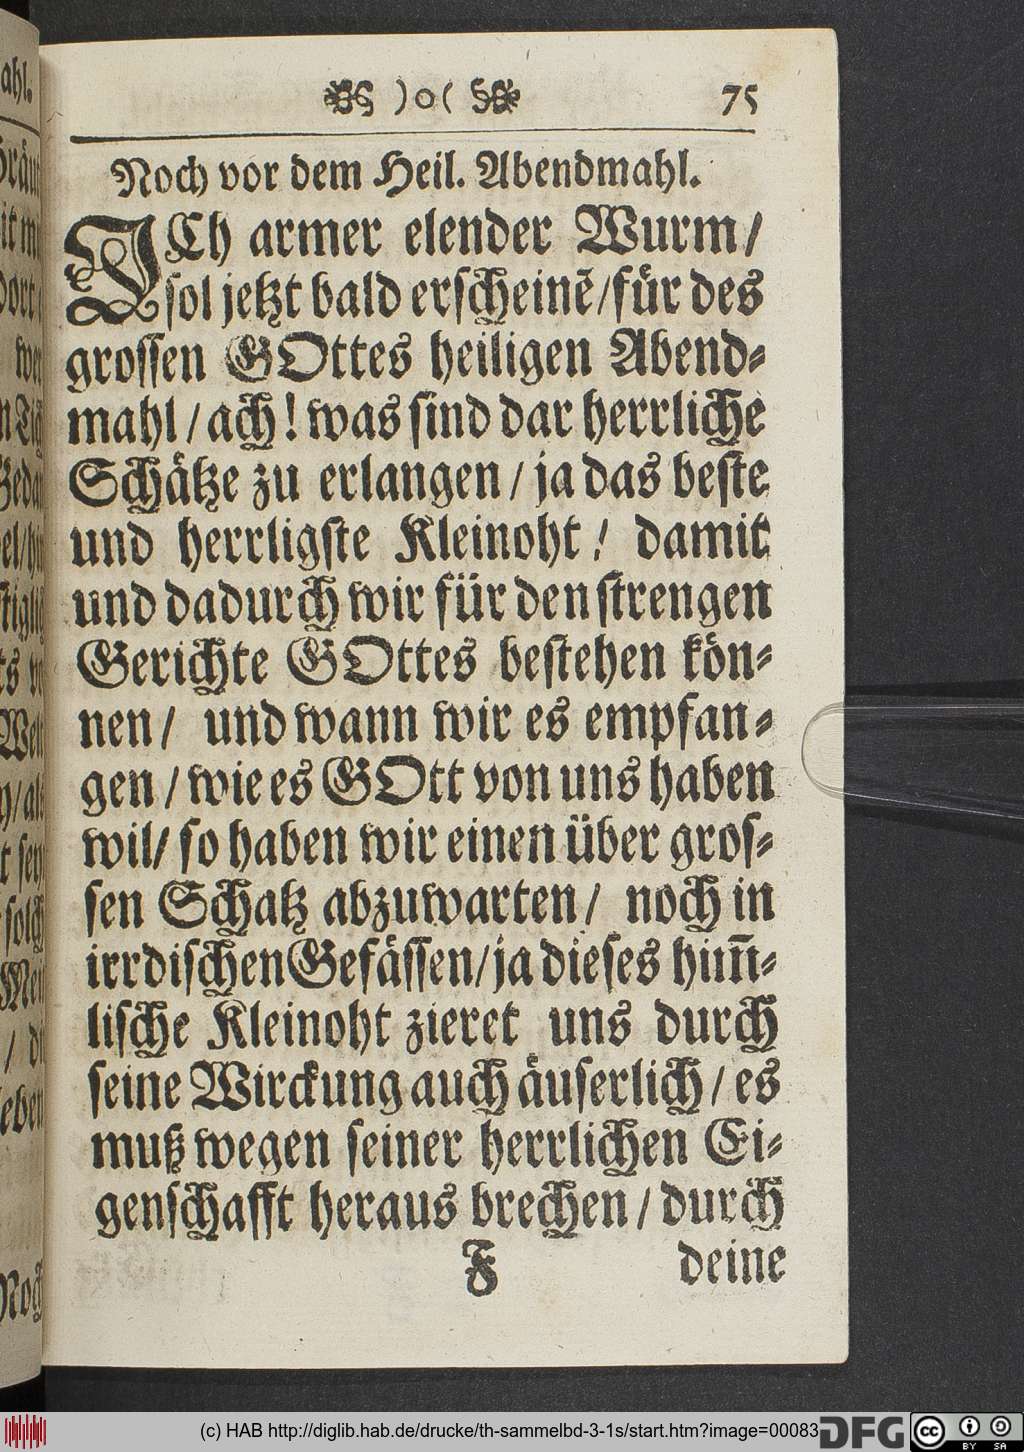 )o( 75
Noch vor dem Heil. Abendmahl.
ICh armer elender Wurm/
sol jetzt bald erscheinē/für des
grossen GOttes heiligen Abend-
mahl/ach! was sind dar herrliche
Schätze zu erlangen/ja das beste
und herrligste Kleinoht/ damit
und dadurch wir für den strengen
Gerichte GOttes bestehen kön-
nen/ und wann wir es empfan-
gen/wie es GOtt von uns haben
wil/ so haben wir einen über gros-
sen Schatz abzuwarten/ noch in
irrdischen Gefässen/ja dieses him̄-
lische Kleinoht zieret uns durch
seine Wirckung auch äuserlich/es
muß wegen seiner herrlichen Ei-
genschafft heraus brechen/durch
F deine
(c) HAB http://diglib.hab.de/drucke/th-sammelbd-3-1s/start.htm?image=00083
DFG
cc
BY SA